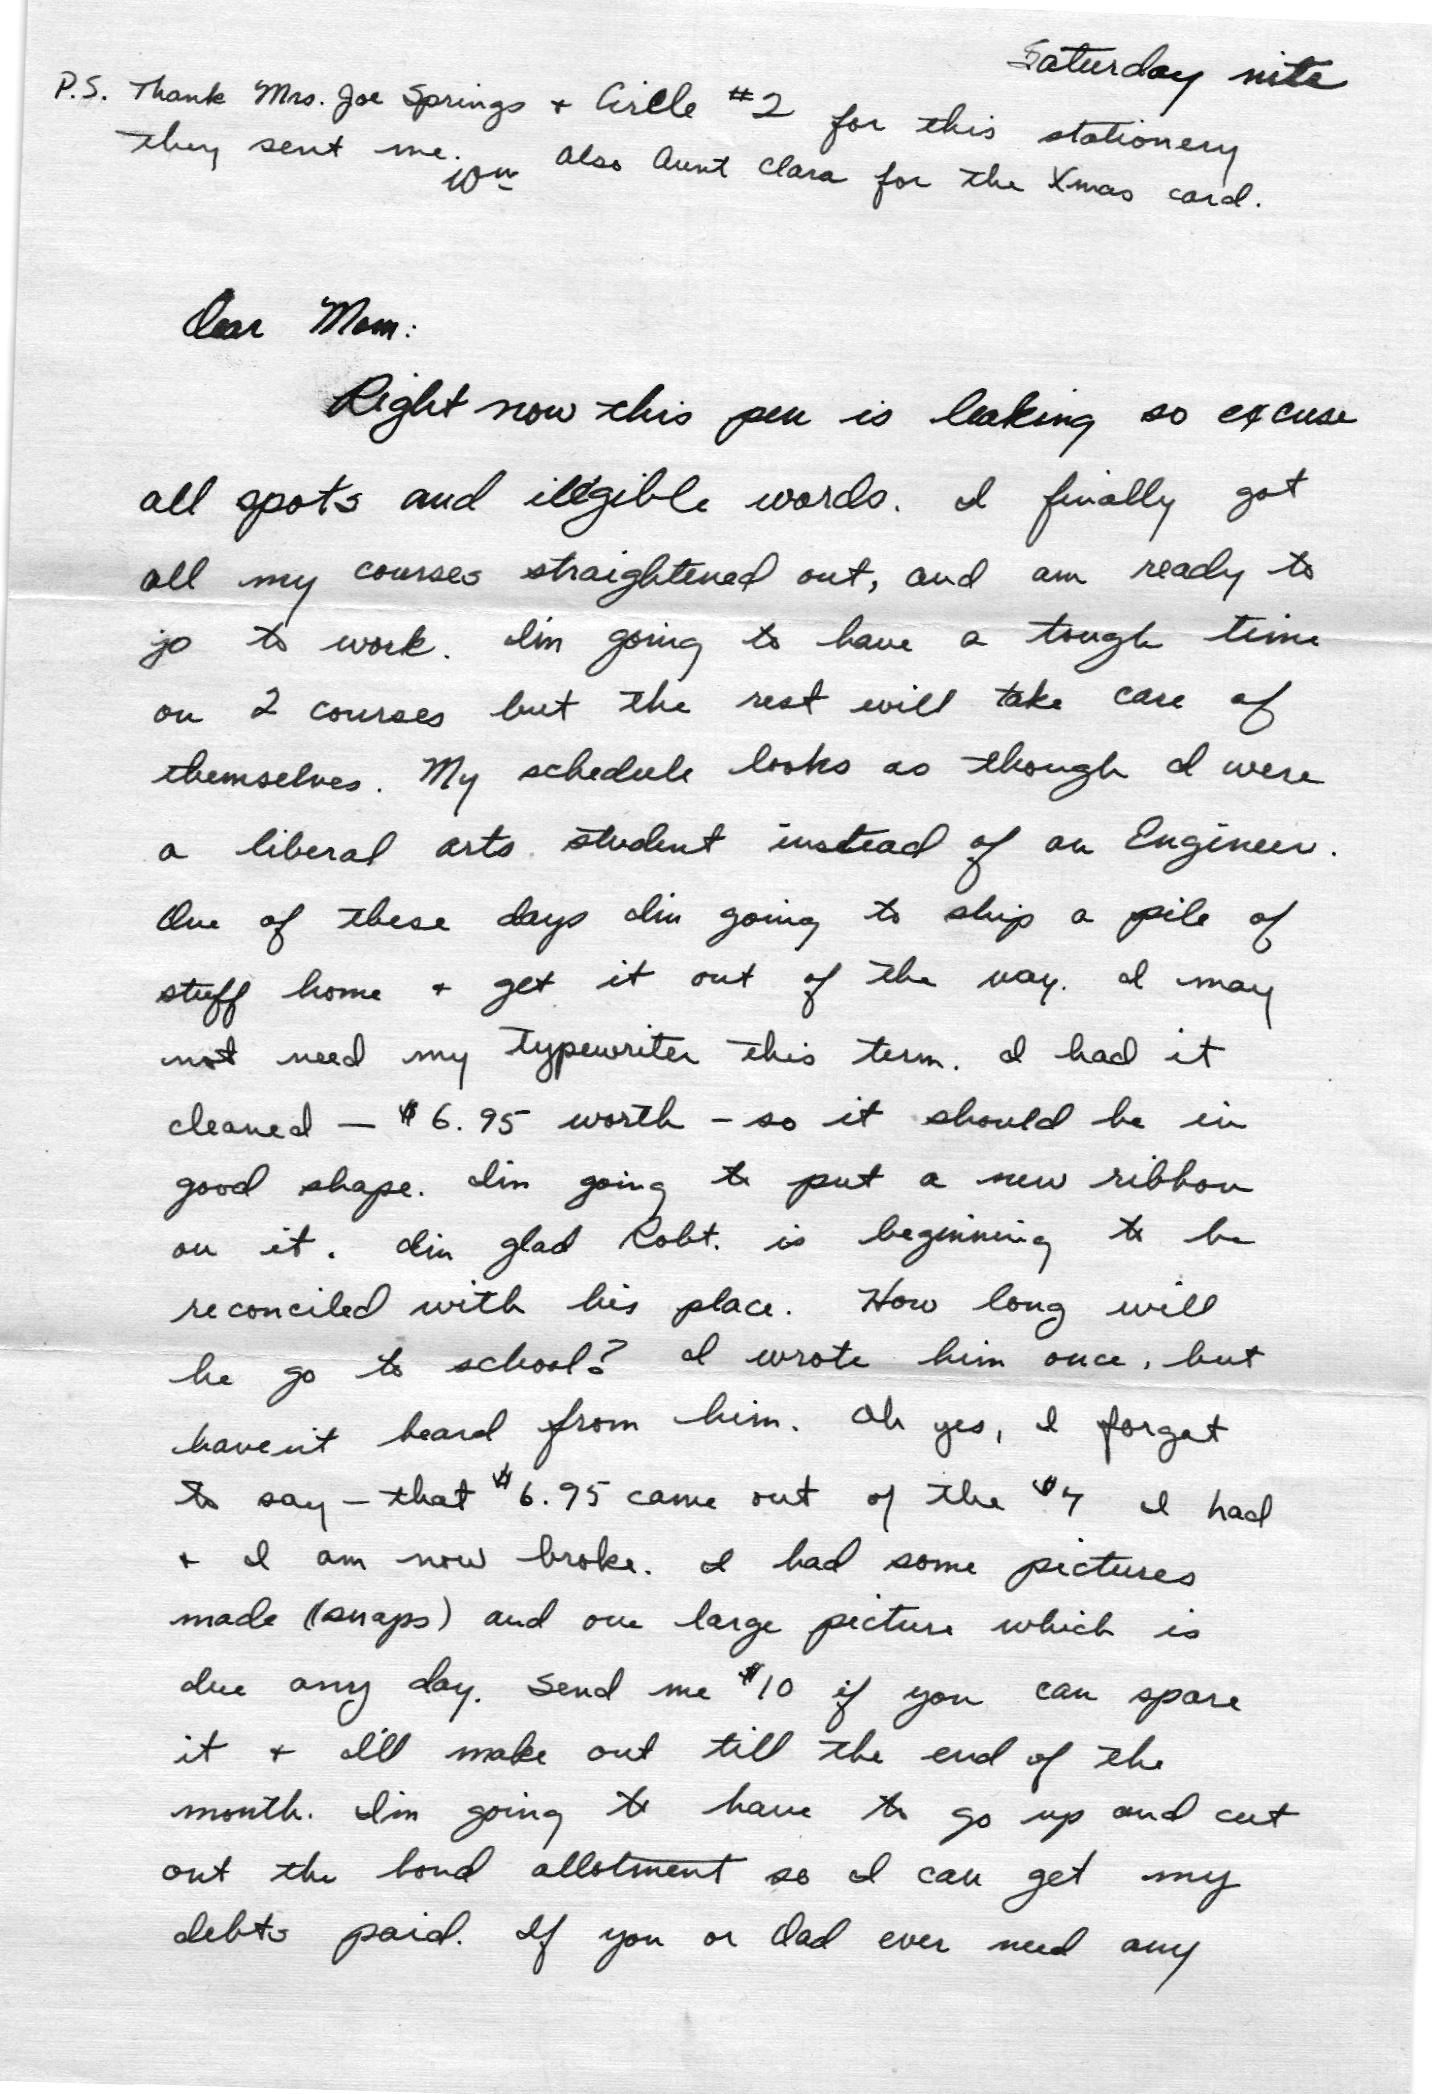 Saturday nite
P.S. Thank Mrs. Joe Springs + Circle #2 for this stationery
they sent me. Also Aunt Clara for the Xmas card.
Wm
Dear Mom:
Right now this pen is leaking so excuse
all spots and illegible words. I finally got
all my courses straightened out, and am ready to
go to work. I'm going to have a tough time
on 2 courses but the rest will take care of
themselves. My schedule looks as though I were
a liberal arts student instead of an Engineer.
One of these days I'm going to ship a pile of
stuff home + get it out of the way. I may
not need my typewriter this term. I had it
cleaned — $6.95 worth – so it should be in
good shape. I'm going to put a new ribbon
on it. I'm glad Robt. is beginning to be
reconciled with his place. How long will
he go to school? I wrote him once, but
haven't heard from him. Oh yes, I forgot
to say – that $6.95 came out of the $7 I had
+ I am now broke. I had some pictures
made (snaps) and one large picture which is
due any day. Send me $10 if you can spare
it + I'll make out till the end of the
month. I'm going to have to go up and cut
out the bond allotment so I can get my
debts paid. If you or Dad ever need any